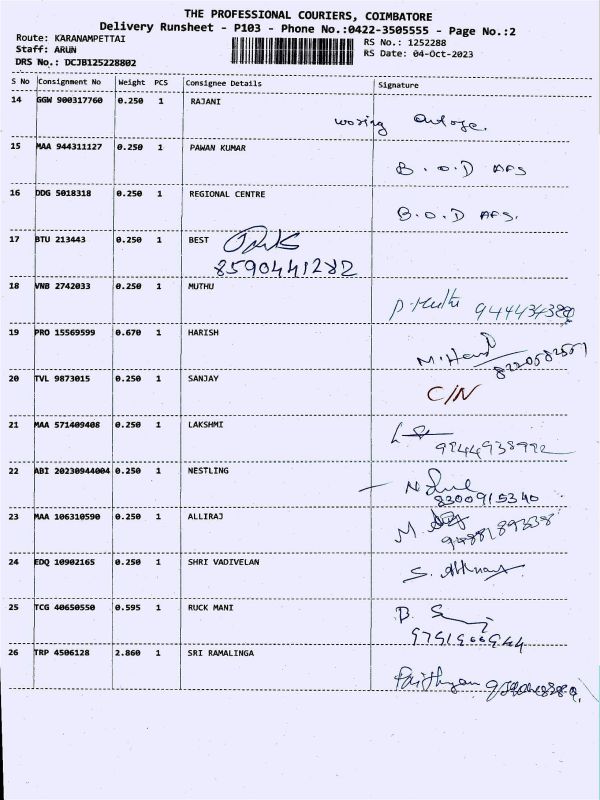 THE PROFESSIONAL COURIERS, COIMBATORE
Delivery Runsheet - P103 - Phone No.:0422-3505555 - Page No.:2
Route: KARANAMPETTAI
RS No.: 1252288
Staff: ARUN
RS Date: 04-Oct-2023
DRS No.: DCJB125228802
S No Consignment No Weight PCS Consignee Details Signature
14 GGW 900317760 0.250 1 RAJANI
15 MAA 944311127 0.250 1 PAWAN KUMAR
B.O.D AFS
16 DDG 5018318 0.250 1 REGIONAL CENTRE
B.O.D AFS.
17 BTU 213443 0.250 1 BEST
8590441282
18 VNB 2742033 0.250 1 MUTHU
P. Muthu
19 PRO 15569599 0.670 1 HARISH
20 TVL 9873015 0.250 1 SANJAY
C/N
21 MAA 571409408 0.250 1 LAKSHMI
22 ABI 20230944004 0.250 1 NESTLING
8300915340
23 MAA 106310590 0.250 1 ALLIRAJ
24 EDQ 10902165 0.250 1 SHRI VADIVELAN
25 TCG 40650550 0.595 1 RUCK MANI
26 TRP 4506128 2.860 1 SRI RAMALINGA